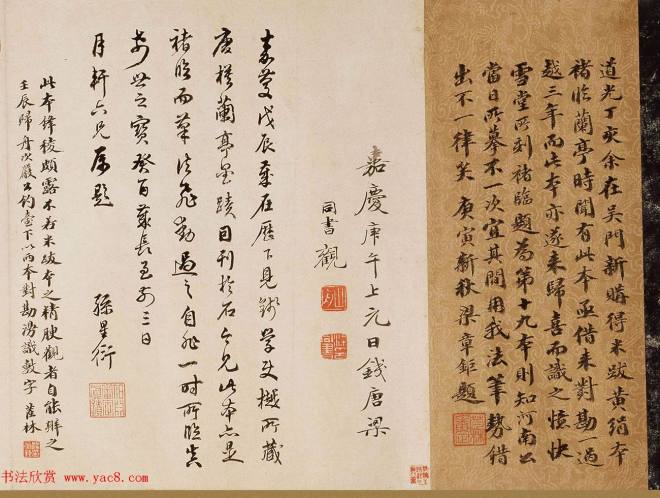 道光丁亥余在吴門新購得米跋黄絹本
褚臨蘭亭時聞有此本亟借来對勘一過
越三年而此本亦遂来歸喜而識之憶快
雪堂所刻褚臨題為第十九本則知河南公
當日所摹不一次宜其間用我法筆勢錯
出不一律矣 庚寅新秋梁章鉅題
嘉慶庚午上元日錢唐梁
同書觀
嘉慶戊辰歲在歷下見錢學使樾所藏
唐模蘭亭墨蹟因刊於石今見此本亦是
褚臨而筆法飛動過之自非一時所臨真
希世之寶癸酉歲長至前三日
月軒六兄属題
孫星衍
此本鋒稜頗露不若米跋本之精腴觀者自能辨之
壬辰歸舟次嚴公釣臺下以两本對勘漫識數字 茝林
书法欣赏 www.yac8.com